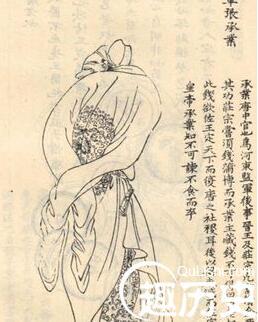 軍張承業
承業唐中官也爲河東監軍後事晉王及莊
其功莊宗嘗須錢蒲博而承業主藏錢不
此幾欲佐王定天下而復唐之社稷耳後以
皇帝承業知不可諫不食而卒
趣历史